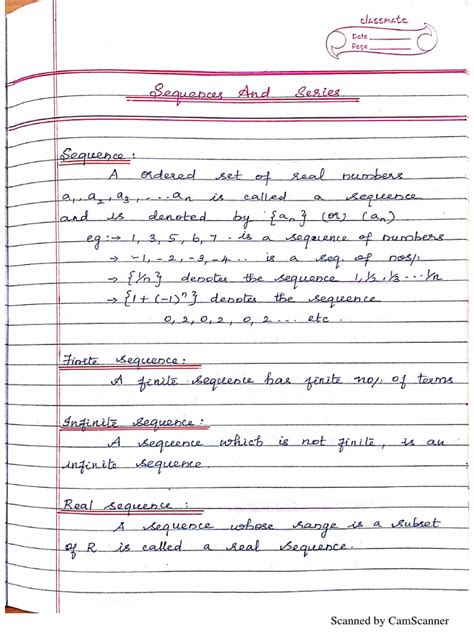 classmate
Date
Page
Sequences And Series
Sequence :
A ordered set of real numbers
a₁, a₂, a₃, ... aₙ is called a sequence
and is denoted by {aₙ} (or) (aₙ)
eg :→ 1, 3, 5, 6, 7 .. is a sequence of numbers
→ -1, -2, -3, -4... is a seq. of nos/.
→ {1/n} denotes the sequence 1, 1/2, 1/3 ... 1/n
→ {1 + (-1)ⁿ} denotes the sequence
0, 2, 0, 2, 0, 2 ... etc.
Finite sequence :
A finite sequence has finite no/. of terms
Infinite sequence :
A sequence which is not finite, is an
infinite sequence.
Real sequence :
A sequence whose range is a subset
of R is called a real sequence.
Scanned by CamScanner